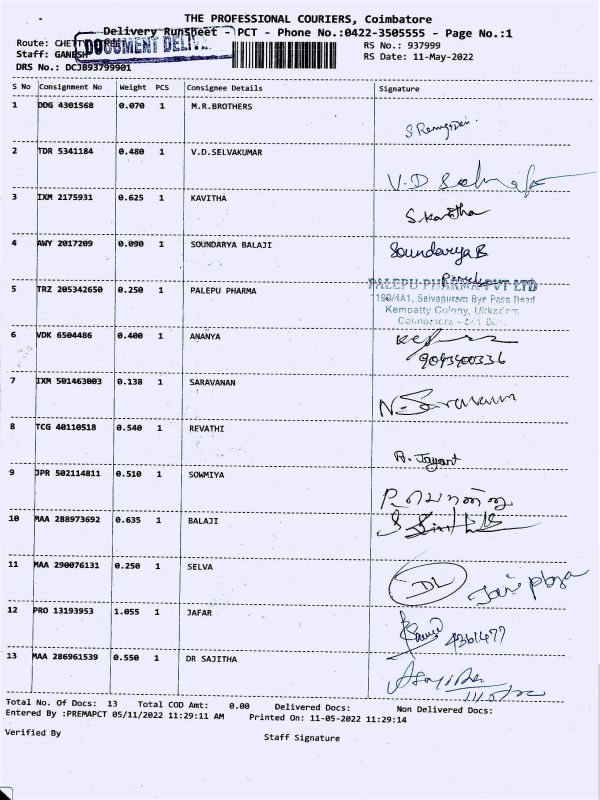 THE PROFESSIONAL COURIERS, Coimbatore
Delivery RunSheet - PCT - Phone No.:0422-3505555 - Page No.:1
Route: CHETTY STREET
DOCUMENT DELIV
RS No.: 937999
Staff: GANESH
RS Date: 11-May-2022
DRS No.: DCJB93799901
S No Consignment No Weight PCS Consignee Details Signature
1 DDG 4301568 0.070 1 M.R.BROTHERS
2 TDR 5341184 0.480 1 V.D.SELVAKUMAR
V.D
3 IXM 2175931 0.625 1 KAVITHA
S.Kavitha
4 AWY 2017209 0.090 1 SOUNDARYA BALAJI
Soundarya B
5 TRZ 205342650 0.250 1 PALEPU PHARMA
PALEPU PHARMA PVT LTD
1190/4A1, Selvapuram Bye Pass Road
Kempatty Colony, Ukkadam
Coimbatore - 641 001.
6 VDK 6504486 0.400 1 ANANYA
9093400336
7 IXM 501463003 0.138 1 SARAVANAN
N. Saravanan
8 TCG 40110518 0.540 1 REVATHI
A. Jayant
9 JPR 502114811 0.510 1 SOWMIYA
10 MAA 288973692 0.635 1 BALAJI
11 MAA 290076131 0.250 1 SELVA
DL
12 PRO 13193953 1.055 1 JAFAR
4361477
13 MAA 286961539 0.550 1 DR SAJITHA
11/05/22
Total No. Of Docs: 13 Total COD Amt: 0.00 Delivered Docs: Non Delivered Docs:
Entered By :PREMAPCT 05/11/2022 11:29:11 AM Printed On: 11-05-2022 11:29:14
Verified By
Staff Signature